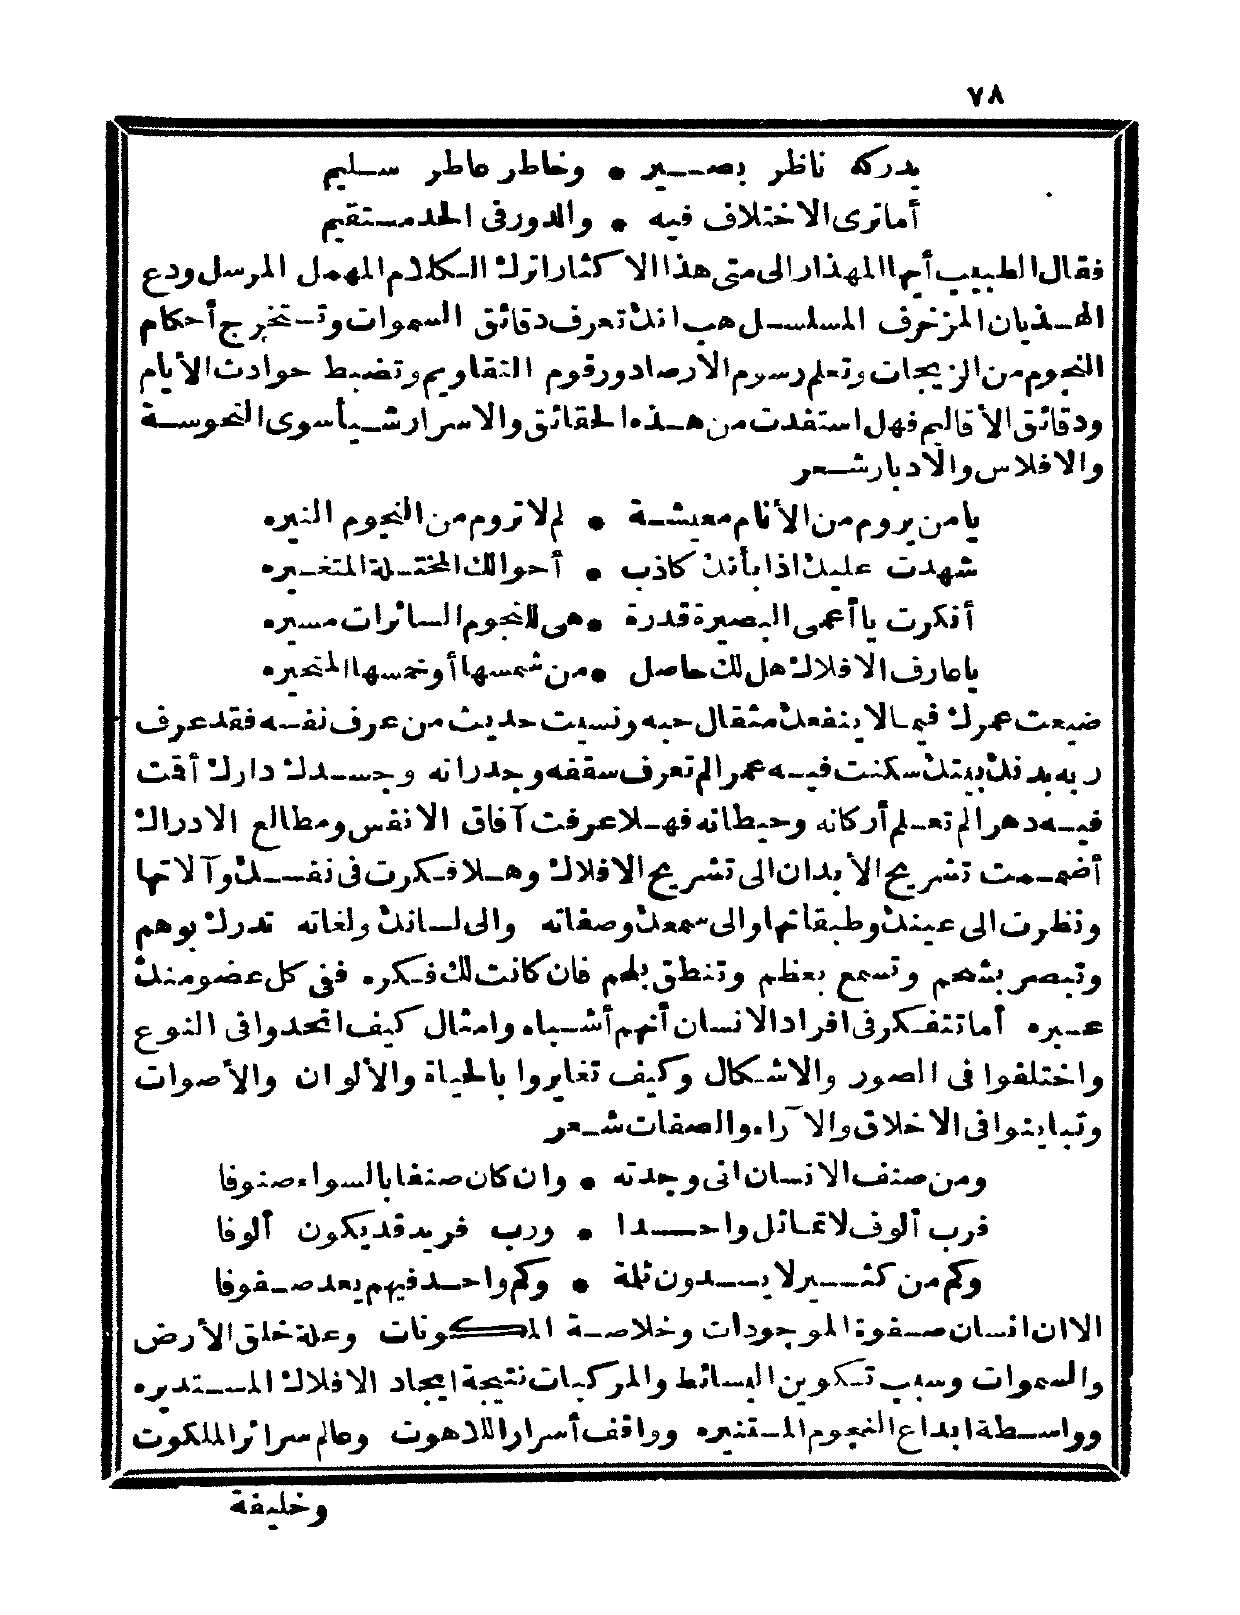 ٧٨
يدركه ناظر بصير • وخاطر عاطر سليم
أما ترى الاختلاف فيه • والدور فى الحد مستقيم
فقال الطبيب أيها المهذار الى متى هذا الاكثار اترك الكلام المهمل المرسل ودع
الهذيان المزخرف المسلسل هب انك تعرف دقائق السموات وتستخرج أحكام
النجوم من الزيجات وتعلم رسوم الارصاد ورقوم التقاويم وتضبط حوادث الأيام
ودقائق الأقاليم فهل استفدت من هذه الحقائق والاسرار شيأ سوى النحوسة
والافلاس والادبار شعر
يا من يروم من الأنام معيشة • لم لا تروم من النجوم النيره
شهدت عليك اذا بأنك كاذب • أحوالك المختلة المتغيره
أفكرت يا أعمى البصيرة قدرة • هى للنجوم السائرات مسيره
يا عارف الافلاك هل لك حاصل • من شمسها أو خمسها المتحيره
ضيعت عمرك فيما لا ينفعك مثقال حبه ونسيت حديث من عرف نفسه فقد عرف
ربه بدنك بيتك سكنت فيه عمرا لم تعرف سقفه وجدرانه وجسدك دارك أقت
فيه دهرا لم تعلم أركانه وحيطانه فهلا عرفت آفاق الانفس ومطالع الادراك
أضممت تشريح الأبدان الى تشريح الافلاك وهلا فكرت فى نفسك وآلاتها
ونظرت الى عينك وطبقاتها والى سمعك وصفاته والى لسانك ولغاته تدرك بوهم
وتبصر بشحم وتسمع بعظم وتنطق بلحم فان كانت لك فكره ففى كل عضو منك
عبره أما تتفكر فى افراد الانسان أنهم أشباه وامثال كيف اتحدوا فى النوع
واختلفوا فى الصور والاشكال وكيف تغايروا بالحياة والألوان والأصوات
وتباينوا فى الاخلاق والآراء والصفات شعر
ومن صنف الانسان انى وجدته • وان كان صنفا بالسواء صنوفا
فرب ألوف لا تماثل واحدا • ورب فريد قد يكون ألوفا
وكم من كثير لا يسدون ثلمة • وكم واحد فيهم يعد صفوفا
الا ان انسان صفوة الموجودات وخلاصة المكونات وعلة خلق الأرض
والسموات وسبب تكوين البسائط والمركبات نتيجة ايجاد الافلاك المستديره
وواسطة ابداع النجوم المستنيره وواقف أسرار اللاهوت وعالم سرائر الملكوت
وخليفة